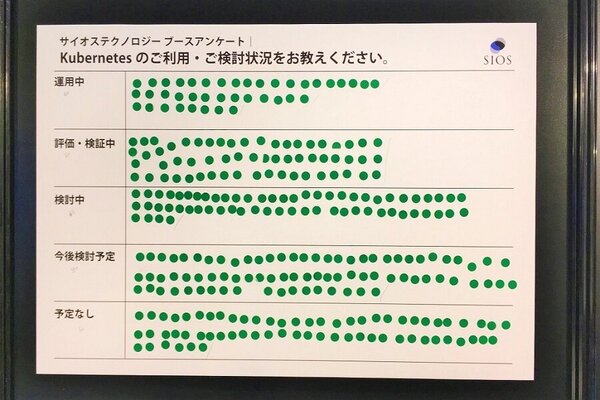 サイオステクノロジー ブースアンケート
Kubernetes のご利用・ご検討状況をお教えください。
SIOS
運用中
評価・検証中
検討中
今後検討予定
予定なし